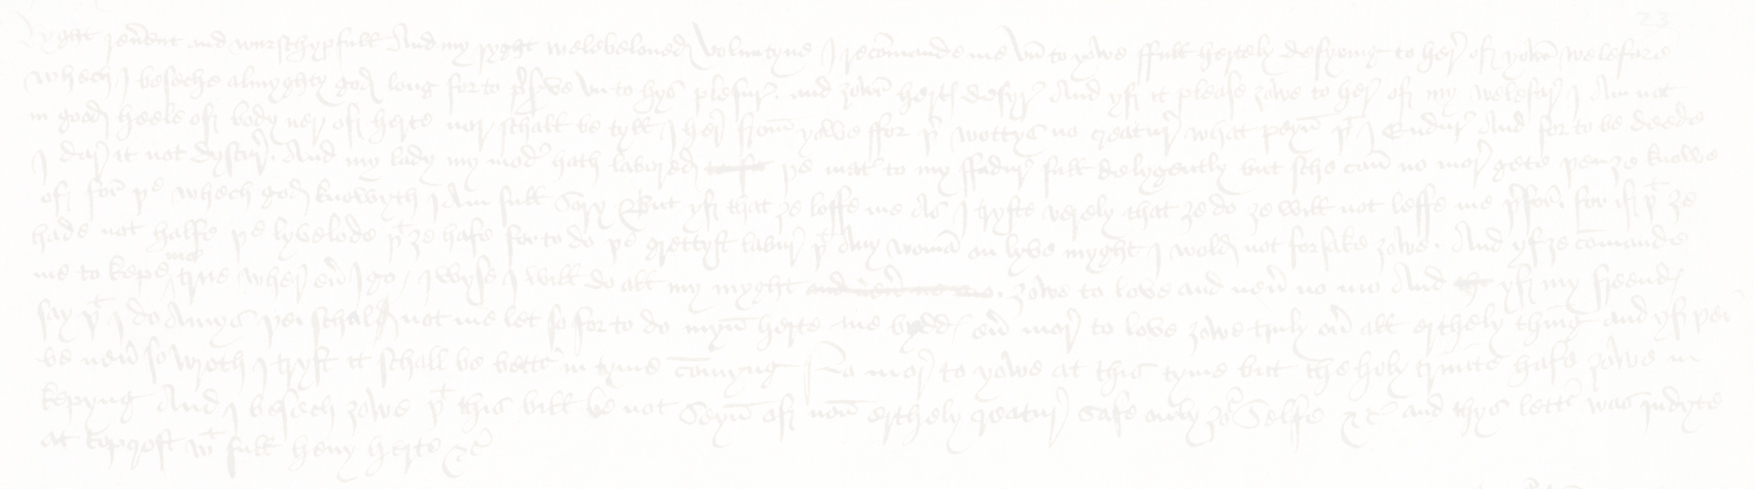 23
Ryght reuerent and wurschypfull And my ryght welebeloued Voluntyne I recomande me vn to yowe ffull hertely desyring to here of yowr welefare
whech I beseche almyghty god long for to preserve vn to hys plesur and zowr herts desyr And yf it please zowe to her of my welefar I am not
in good heele of body ner of herte nor schall be tyll I her from yowe ffor þer wottys no creatur what peyn þt I endur And for to be deede
I dar it not dyscur And my lady my moder hath labored þe mater to my ffadur full delygently but sche can no mor gete þen ze knowe
of for þe whech god knowyth I am full sory But yf that ze loffe me as I tryste verely that ze do ze will not leffe me þerfor for if þt ze
hade not halfe þe lyvelode þt ze hafe for to do þe grettyst labur þt any woman on lyve myght I wold not forsake zowe And yf ze comande
me to kepe me trwe wher euer I go I wyse I will do all my myght zowe to love and neuer no mo And yf my freends
say þt I do amys þei schal not me let so for to do myn herte me bydds euer mor to love zowe truly ouer all erthely thing and yf þei
be neuer so wroth I tryst it schall be better in tyme comyng No mor to yowe at this tyme but the holy trinite hafe zowe in
kepyng And I besech zowe þt this bill be not seyn of non erthely creatur safe only zour selfe &c and thys letter was indyte
at topcroft wt full heuy herte &c